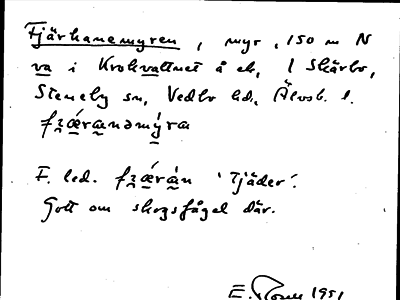 Fjärhanemyren, myr, 150 m N
va i Krokvattnet å ek, 1 Skärbo,
Steneby sn, Vedbo hd, Älvsb. l.
F. led. 'Tjäder'.
Gott om skogsfågel där.
E. 1951